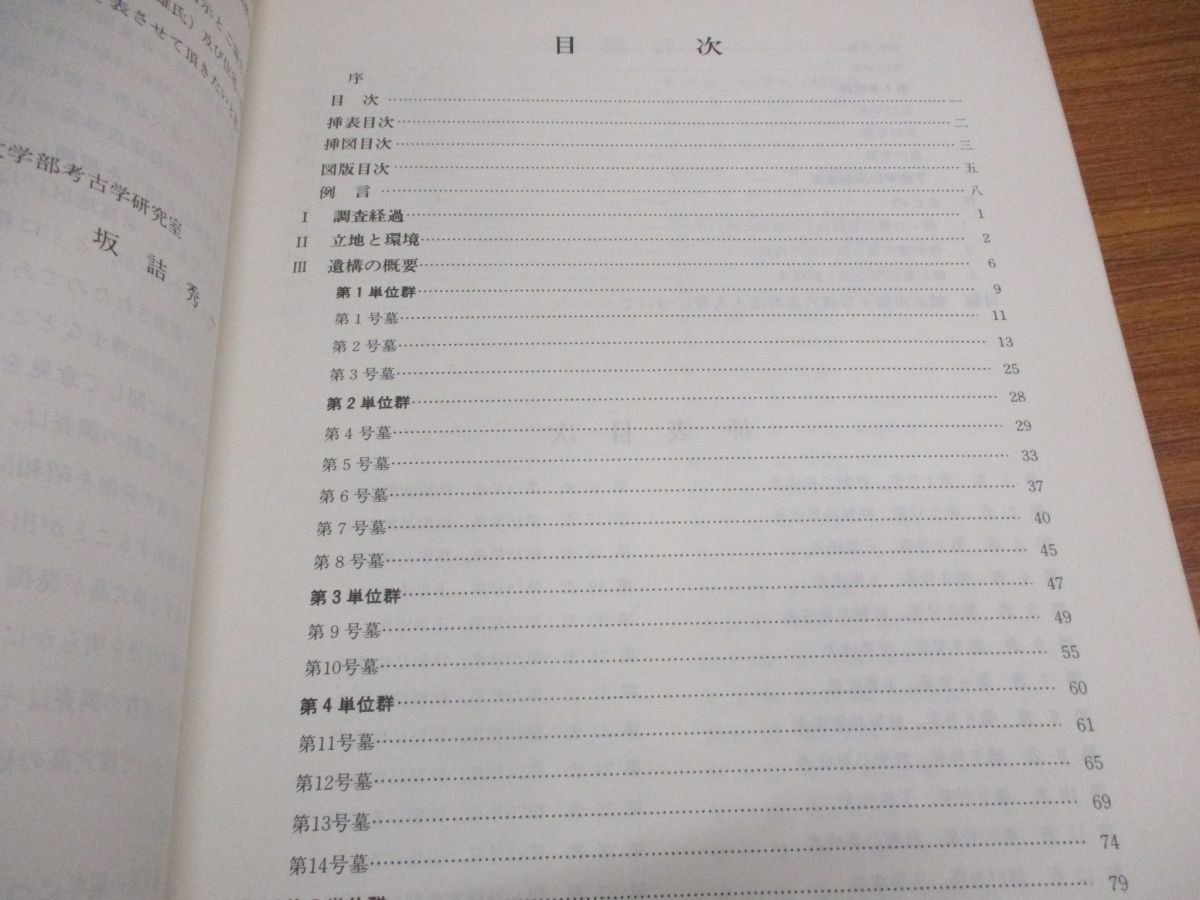 表させて頂きたいと
学部考古学研究室
坂詰秀
目次
序
目次 一
挿表目次 二
挿図目次 三
図版目次 五
例言 八
Ⅰ 調査経過 1
Ⅱ 立地と環境 2
Ⅲ 遺構の概要 6
第1単位群 9
第1号墓 11
第2号墓 13
第3号墓 25
第2単位群 28
第4号墓 29
第5号墓 33
第6号墓 37
第7号墓 40
第8号墓 45
第3単位群 47
第9号墓 49
第10号墓 55
第4単位群 60
第11号墓 61
第12号墓 65
第13号墓 69
第14号墓 74
79